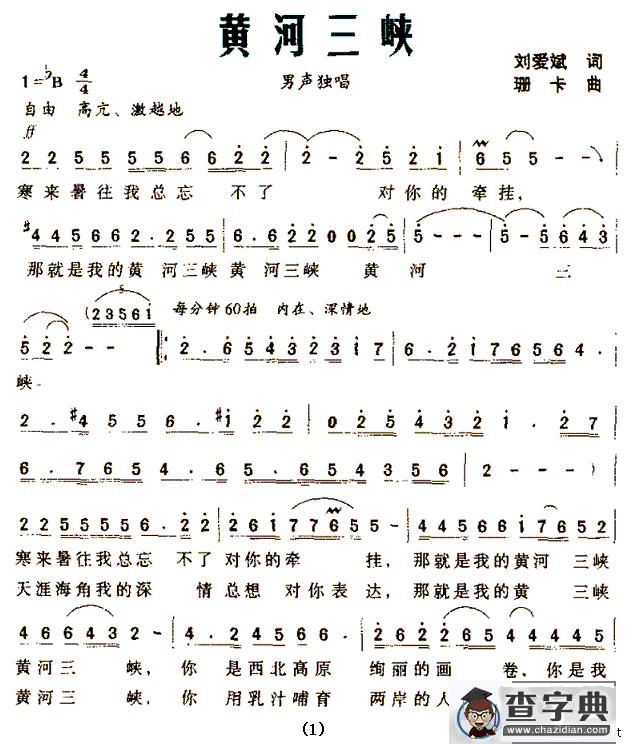 黄河三峡
1=♭B 4/4
男声独唱
刘爱斌 词
珊卡 曲
自由 高亢、激越地
ff
2 2 5 5 5 5 5 6 6 2 2 | 2 - 2 5 2 1 | 6 5 5 5 - - )
寒来暑往我总忘 不了 对你的牵挂,
#4 4 5 6 6 2 . 2 5 5 | 6 . 6 2 2 0 0 2 5 | 5 - - - | 5 - 5 6 4 3
那就是我的黄 河三峡 黄 河三峡 黄 河 三
(2 3 5 6 1
每分钟60拍 内在、深情地
5 2 2 - - ‖: 2 . 6 5 4 3 2 3 1 7 | 6 . 2 1 7 6 5 6 4 .
峡
2 . #4 5 5 6 . #1 2 2 | 0 2 5 4 3 2 1 . 2 7
6 . 7 6 5 4 . 6 5 . 6 5 4 3 5 6 | 2 - - - )
2 2 5 5 5 5 6 . 2 2 | 2 6 1 7 7 6 5 5 - | 4 4 5 6 6 1 7 6 5 2
寒来暑往我总忘 不了 对你的牵 挂, 那就是我的黄河 三峡
天涯海角我的深 情总想 对你表 达, 那就是我的黄 三峡
4 6 6 4 3 2 - | 4 . 2 4 5 7 6 5 5 - | 2 6 2 2 6 4 4 4 4 5
黄河三 峡, 你 是西北高原 绚丽的画 卷, 你是我
黄河三 峡, 你 用乳汁哺育 两岸的人
查字典
www.chazidian.com
(1)
t